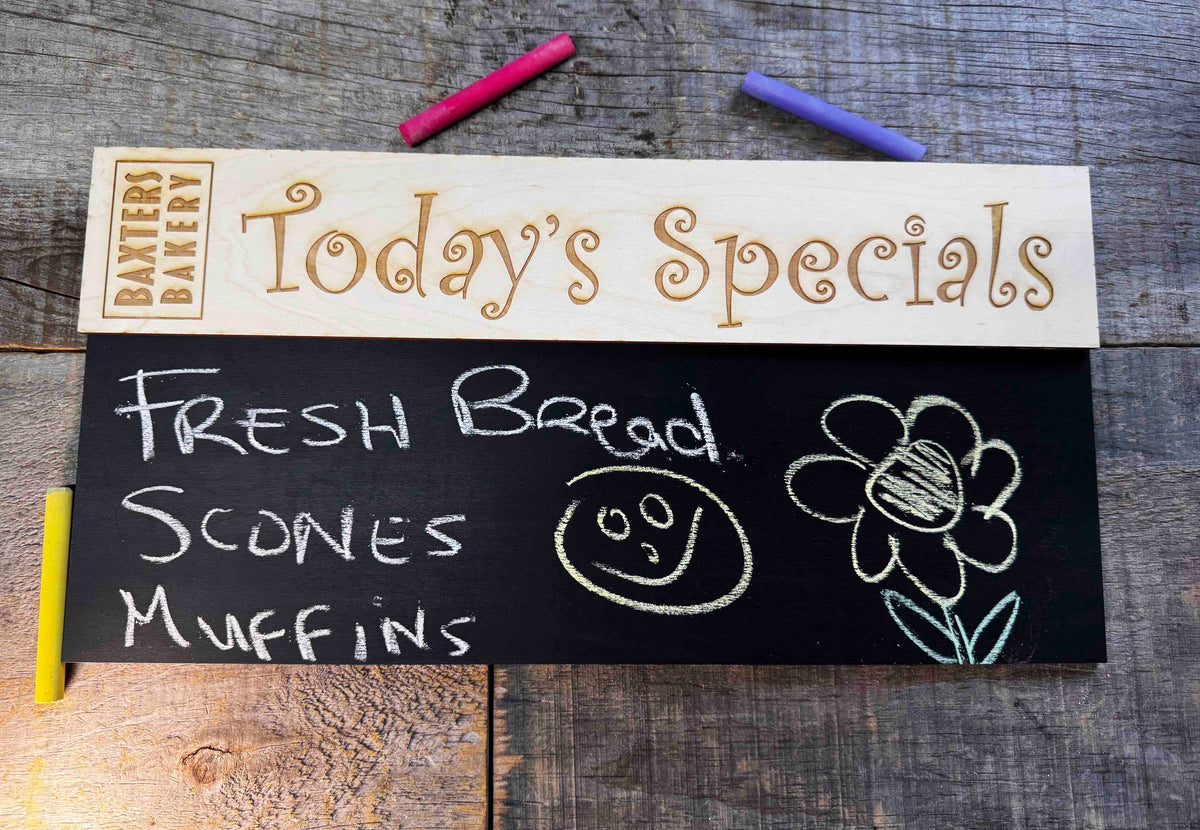 BAXTERS
BAKERY
Today's Specials
FRESH Bread
SCONES
MUFFiNS